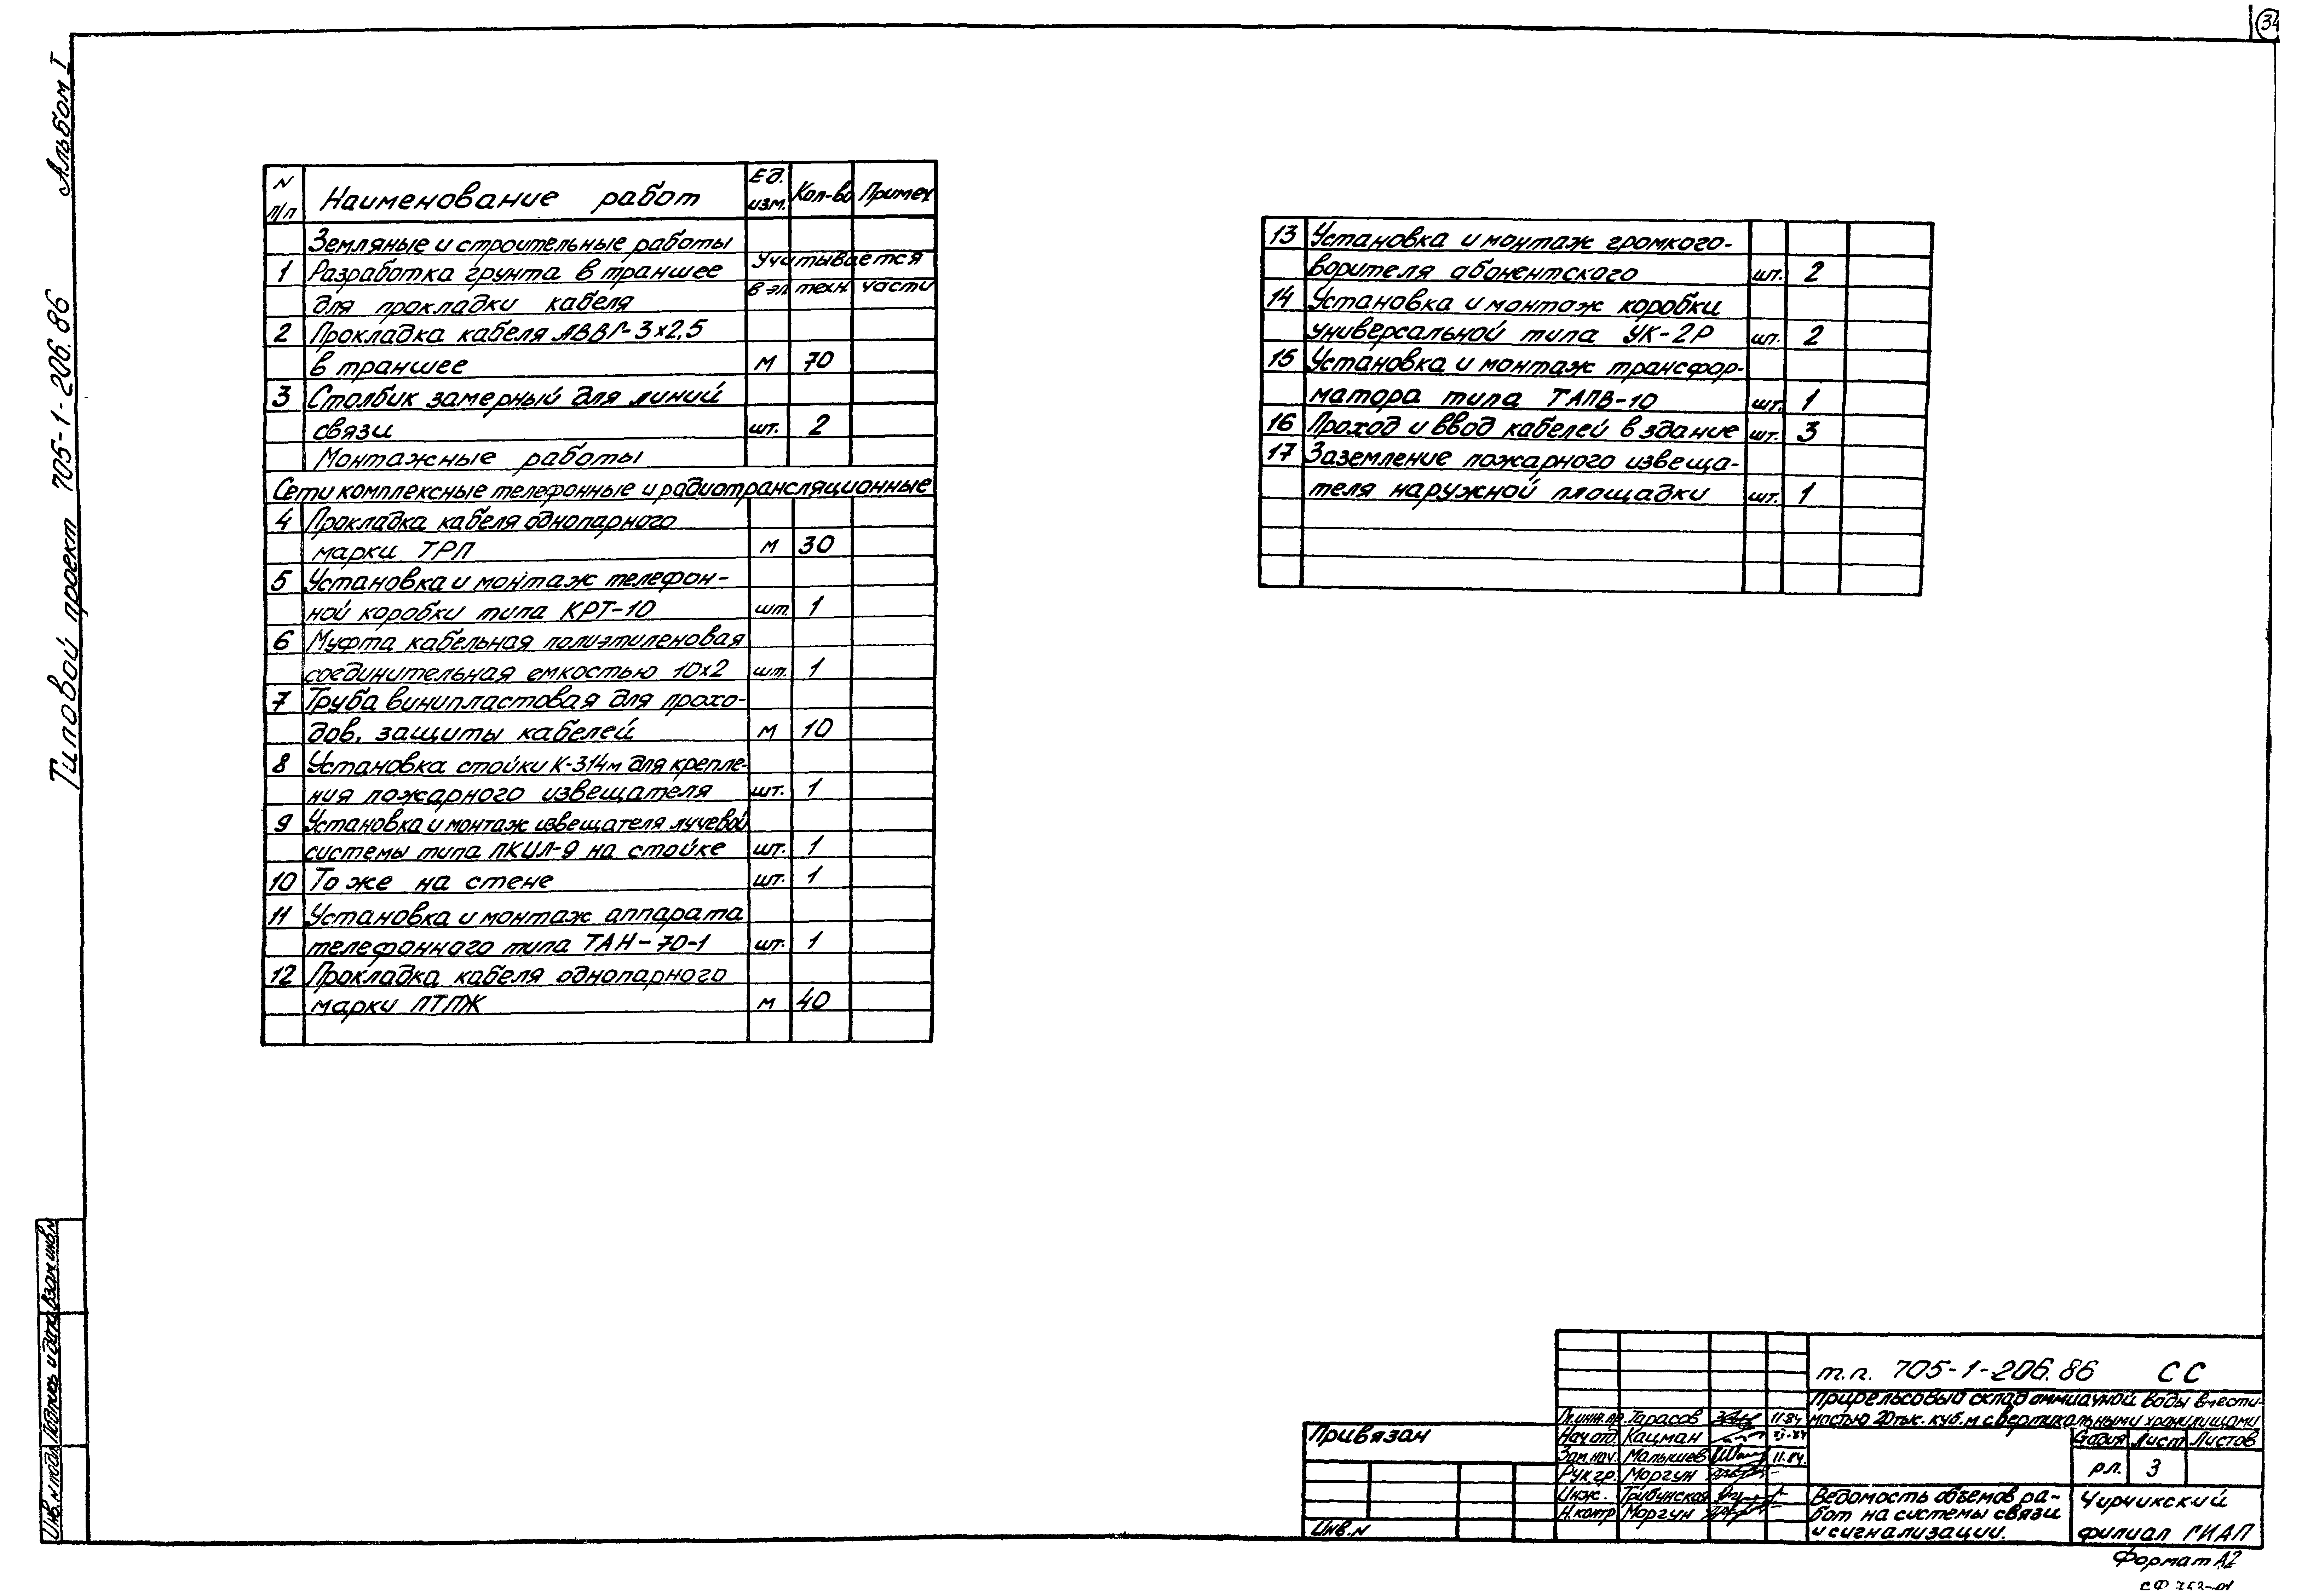 34
Типовой проект 705-1-206.86 Альбом I
N п/п Наименование работ Ед. изм. Кол-во Примеч
Земляные и строительные работы
1 Разработка грунта в траншее учитывается
для прокладки кабеля в эл. техн. части
2 Прокладка кабеля АВВГ-3х2,5
в траншее м 70
3 Столбик замерный для линий
связи шт. 2
Монтажные работы
Сети комплексные телефонные и радиотрансляционные
4 Прокладка кабеля однопарного
марки ТРП м 30
5 Установка и монтаж телефон-
ной коробки типа КРТ-10 шт. 1
6 Муфта кабельная полиэтиленовая
соединительная емкостью 10х2 шт. 1
7 Труба винипластовая для прохо-
дов, защиты кабелей м 10
8 Установка стойки К-314м для крепле-
ния пожарного извещателя шт. 1
9 Установка и монтаж извещателя лучевой
системы типа ПКИЛ-9 на стойке шт. 1
10 То же на стене шт. 1
11 Установка и монтаж аппарата
телефонного типа ТАН-70-1 шт. 1
12 Прокладка кабеля однопарного
марки ПТПЖ м 40
13 Установка и монтаж громкого-
ворителя абонентского шт. 2
14 Установка и монтаж коробки
универсальной типа УК-2Р шт. 2
15 Установка и монтаж трансфор-
матора типа ТАПВ-10 шт. 1
16 Проход и ввод кабелей в здание шт. 3
17 Заземление пожарного извеща-
теля наружной площадки шт. 1
Инв. N подл. Подпись и дата Взам инв. N
Привязан
Инв. N
Гл. инж. пр. Тарасов 11.84
Нач. отд. Кацман
Зам. нач. Малышев 11.84.
Рук. гр. Моргун
Инж. Трибунская
Н. контр Моргун
т.п. 705-1-206.86 СС
Прирельсовый склад аммиачной воды вмести-
мостью 20 тыс. куб. м с вертикальными хранилищами
Стадия Лист Листов
р.п. 3
Ведомость объемов ра-
бот на системы связи
и сигнализации.
Чирчикский
филиал ГИАП
Формат А2
СФ 752-01